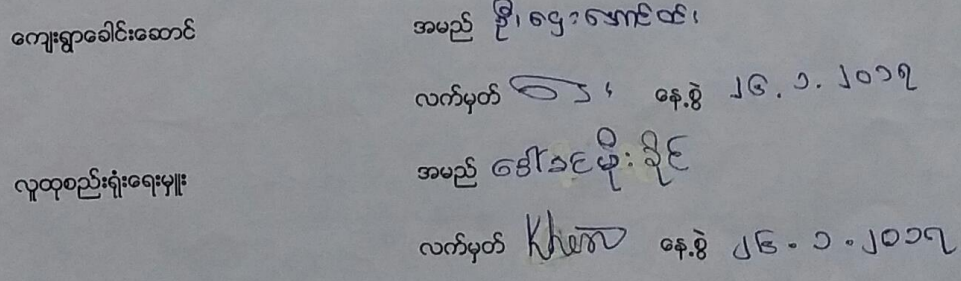 ကျေးရွာခေါင်းဆောင် အမည် ဦးဌေးအောင်
လက်မှတ် နေ့စွဲ ၂၆.၁.၂၀၁၇
လူထုစည်းရုံးရေးမှူး အမည် ဒေါ်ခင်မိုးခိုင်
လက်မှတ် နေ့စွဲ ၂၆.၁.၂၀၁၇